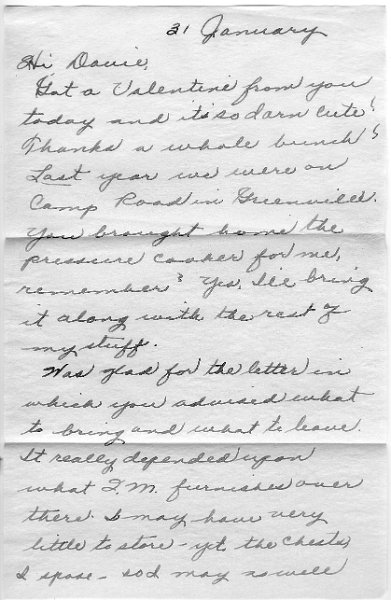 31 January
Hi Davie,
Got a Valentine from you
today and it's so darn cute!
Thanks a whole bunch!
Last year we were on
Camp Road in Greenville.
You brought home the
pressure cooker for me,
remember? Yes, I'll bring
it along with the rest of
my stuff.
Was glad for the letter in
which you advised what
to bring and what to leave.
It really depended upon
what Q.M. furnishes over
there I may have very
little to store - yet the chests,
I spose - so I may as well